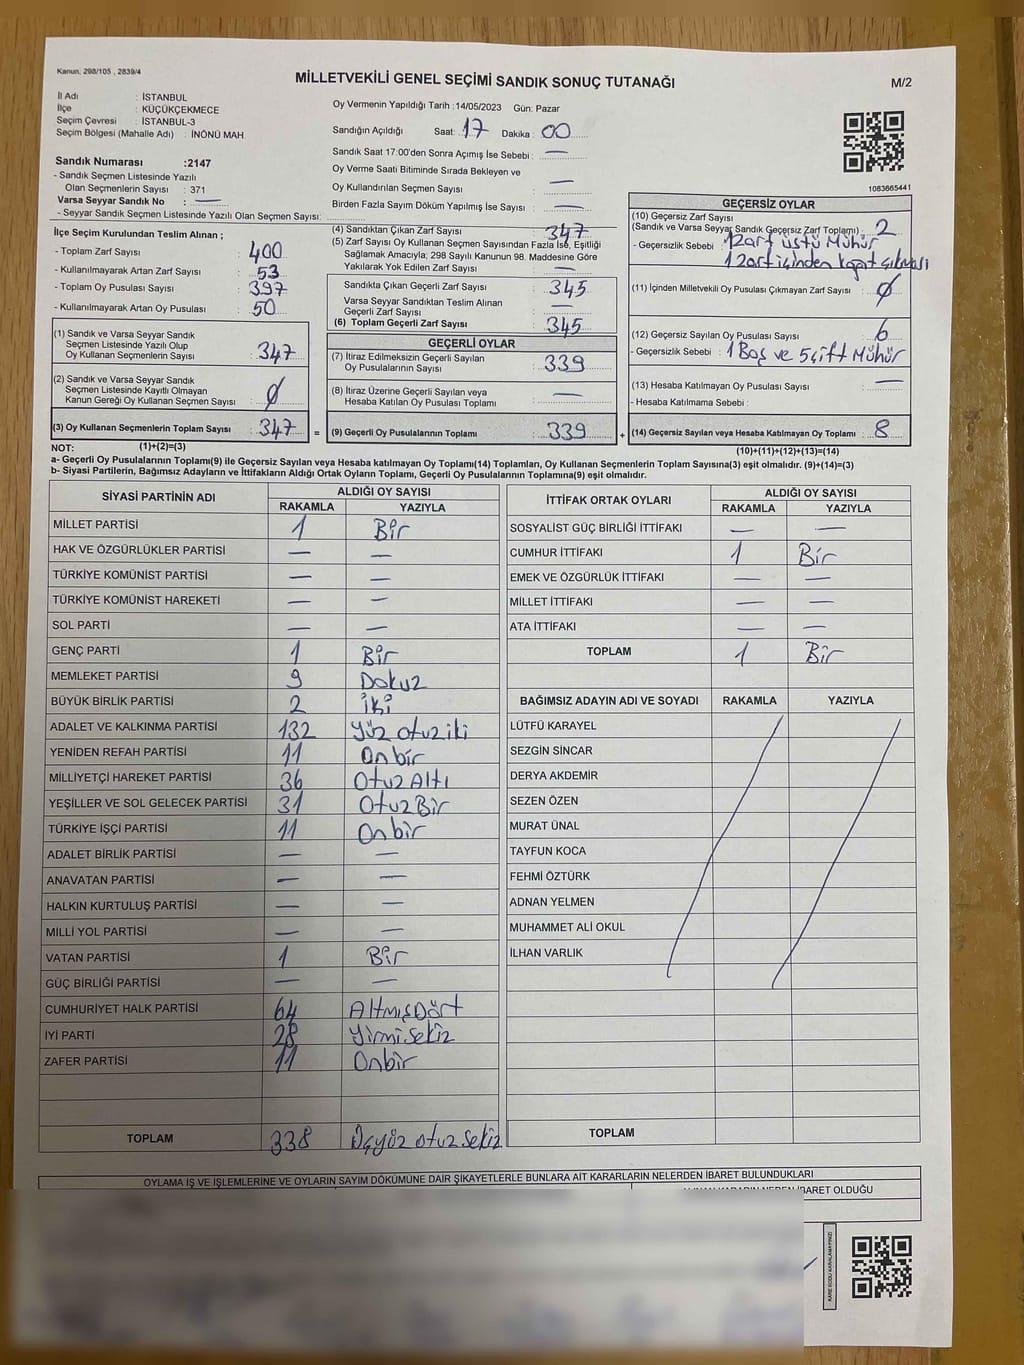 Kanun: 298/105 , 2839/4
MİLLETVEKİLİ GENEL SEÇİMİ SANDIK SONUÇ TUTANAĞI
M/2
İl Adı : İSTANBUL
İlçe : KÜÇÜKÇEKMECE
Seçim Çevresi : İSTANBUL-3
Seçim Bölgesi (Mahalle Adı) : İNÖNÜ MAH.
Sandık Numarası :2147
- Sandık Seçmen Listesinde Yazılı
Olan Seçmenlerin Sayısı : 371
Varsa Seyyar Sandık No : —
- Seyyar Sandık Seçmen Listesinde Yazılı Olan Seçmen Sayısı:
Oy Vermenin Yapıldığı Tarih :14/05/2023 Gün: Pazar
Sandığın Açıldığı Saat: 17 Dakika : 00
Sandık Saat 17:00'den Sonra Açımış İse Sebebi : —
Oy Verme Saati Bitiminde Sırada Bekleyen ve
Oy Kullandırılan Seçmen Sayısı : —
Birden Fazla Sayım Döküm Yapılmış İse Sayısı : —
1083665441
İlçe Seçim Kurulundan Teslim Alınan ;
- Toplam Zarf Sayısı : 400
- Kullanılmayarak Artan Zarf Sayısı : 53
- Toplam Oy Pusulası Sayısı : 397
- Kullanılmayarak Artan Oy Pusulası : 50
(1) Sandık ve Varsa Seyyar Sandık
Seçmen Listesinde Yazılı Olup
Oy Kullanan Seçmenlerin Sayısı : 347
(2) Sandık ve Varsa Seyyar Sandık
Seçmen Listesinde Kayıtlı Olmayan
Kanun Gereği Oy Kullanan Seçmen Sayısı : Ø
(3) Oy Kullanan Seçmenlerin Toplam Sayısı : 347 =
(4) Sandıktan Çıkan Zarf Sayısı : 347
(5) Zarf Sayısı Oy Kullanan Seçmen Sayısından Fazla İse, Eşitliği
Sağlamak Amacıyla; 298 Sayılı Kanunun 98. Maddesine Göre
Yakılarak Yok Edilen Zarf Sayısı : —
Sandıkta Çıkan Geçerli Zarf Sayısı : 345
Varsa Seyyar Sandıktan Teslim Alınan
Geçerli Zarf Sayısı : —
(6) Toplam Geçerli Zarf Sayısı : 345
GEÇERLİ OYLAR
(7) İtiraz Edilmeksizin Geçerli Sayılan
Oy Pusulalarının Sayısı : 339
(8) İtiraz Üzerine Geçerli Sayılan veya
Hesaba Katılan Oy Pusulası Toplamı : —
(9) Geçerli Oy Pusulalarının Toplamı : 339 +
GEÇERSİZ OYLAR
(10) Geçersiz Zarf Sayısı
(Sandık ve Varsa Seyyar Sandık Geçersiz Zarf Toplamı) : 2
- Geçersizlik Sebebi : 1 Zarf üstü Mühür
1 Zarf içinden kağıt çıkması
(11) İçinden Milletvekili Oy Pusulası Çıkmayan Zarf Sayısı : Ø
(12) Geçersiz Sayılan Oy Pusulası Sayısı : 6
- Geçersizlik Sebebi : 1 Boş ve 5 çift Mühür
(13) Hesaba Katılmayan Oy Pusulası Sayısı : —
- Hesaba Katılmama Sebebi :
(14) Geçersiz Sayılan veya Hesaba Katılmayan Oy Toplamı : 8
NOT: (1)+(2)=(3)
(10)+(11)+(12)+(13)=(14)
a- Geçerli Oy Pusulalarının Toplamı(9) ile Geçersiz Sayılan veya Hesaba katılmayan Oy Toplamı(14) Toplamları, Oy Kullanan Seçmenlerin Toplam Sayısına(3) eşit olmalıdır. (9)+(14)=(3)
b- Siyasi Partilerin, Bağımsız Adayların ve İttifakların Aldığı Ortak Oyların Toplamı, Geçerli Oy Pusulalarının Toplamına(9) eşit olmalıdır.
SİYASİ PARTİNİN ADI ALDIĞI OY SAYISI
RAKAMLA YAZIYLA
MİLLET PARTİSİ 1 Bir
HAK VE ÖZGÜRLÜKLER PARTİSİ — —
TÜRKİYE KOMÜNİST PARTİSİ — —
TÜRKİYE KOMÜNİST HAREKETİ — —
SOL PARTİ — —
GENÇ PARTİ 1 Bir
MEMLEKET PARTİSİ 9 Dokuz
BÜYÜK BİRLİK PARTİSİ 2 iki
ADALET VE KALKINMA PARTİSİ 132 Yüz otuz iki
YENİDEN REFAH PARTİSİ 11 Onbir
MİLLİYETÇİ HAREKET PARTİSİ 36 Otuz Altı
YEŞİLLER VE SOL GELECEK PARTİSİ 31 Otuz Bir
TÜRKİYE İŞÇİ PARTİSİ 11 Onbir
ADALET BİRLİK PARTİSİ — —
ANAVATAN PARTİSİ — —
HALKIN KURTULUŞ PARTİSİ — —
MİLLİ YOL PARTİSİ — —
VATAN PARTİSİ 1 Bir
GÜÇ BİRLİĞİ PARTİSİ — —
CUMHURİYET HALK PARTİSİ 64 Altmış Dört
İYİ PARTİ 28 Yirmi Sekiz
ZAFER PARTİSİ 11 Onbir
TOPLAM 338 Üçyüz otuz Sekiz
İTTİFAK ORTAK OYLARI ALDIĞI OY SAYISI
RAKAMLA YAZIYLA
SOSYALİST GÜÇ BİRLİĞİ İTTİFAKI — —
CUMHUR İTTİFAKI 1 Bir
EMEK VE ÖZGÜRLÜK İTTİFAKI — —
MİLLET İTTİFAKI — —
ATA İTTİFAKI — —
TOPLAM 1 Bir
BAĞIMSIZ ADAYIN ADI VE SOYADI RAKAMLA YAZIYLA
LÜTFÜ KARAYEL
SEZGİN SİNCAR
DERYA AKDEMİR
SEZEN ÖZEN
MURAT ÜNAL
TAYFUN KOCA
FEHMİ ÖZTÜRK
ADNAN YELMEN
MUHAMMET ALİ OKUL
İLHAN VARLIK
TOPLAM
OYLAMA İŞ VE İŞLEMLERİNE VE OYLARIN SAYIM DÖKÜMÜNE DAİR ŞİKAYETLERLE BUNLARA AİT KARARLARIN NELERDEN İBARET BULUNDUKLARI
İBARET OLDUĞU